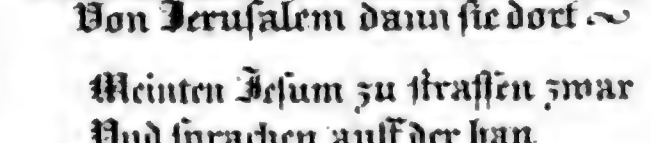 Von Jeruſalem dann ſie dort ~
Meinten Jeſum zu ſtraffen zwar
Vnd ſprachen auff der han